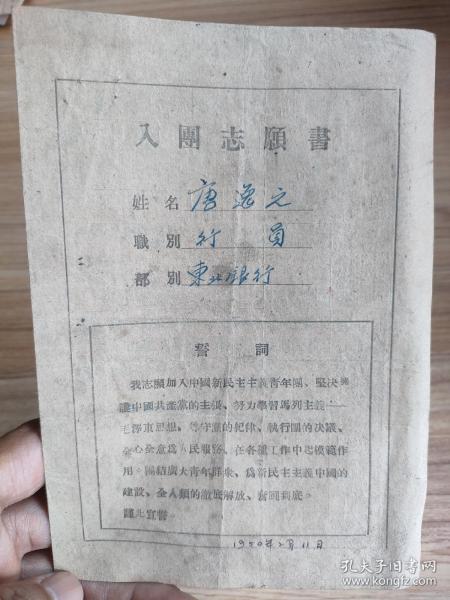 入團志願書
姓名 唐逸元
職別 行員
部別 東北銀行
誓詞
我志願加入中國新民主主義青年團、堅決擁
護中國共產黨的主張、努力學習馬列主義——
毛澤東思想、遵守團的紀律、執行團的決議、
全心全意爲人民服務、在各種工作中起模範作
用。團結廣大青年群衆、爲新民主主義中國的
建設、全人類的澈底解放、奮鬥到底。
謹此宣誓。
1950年2月11日
孔夫子旧书网
www.kongfz.com